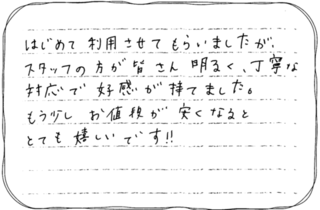 はじめて利用させてもらいましたが、
スタッフの方が皆さん明るく、丁寧な
対応で好感が持てました。
もう少しお値段が安くなると
とても嬉しいです!!